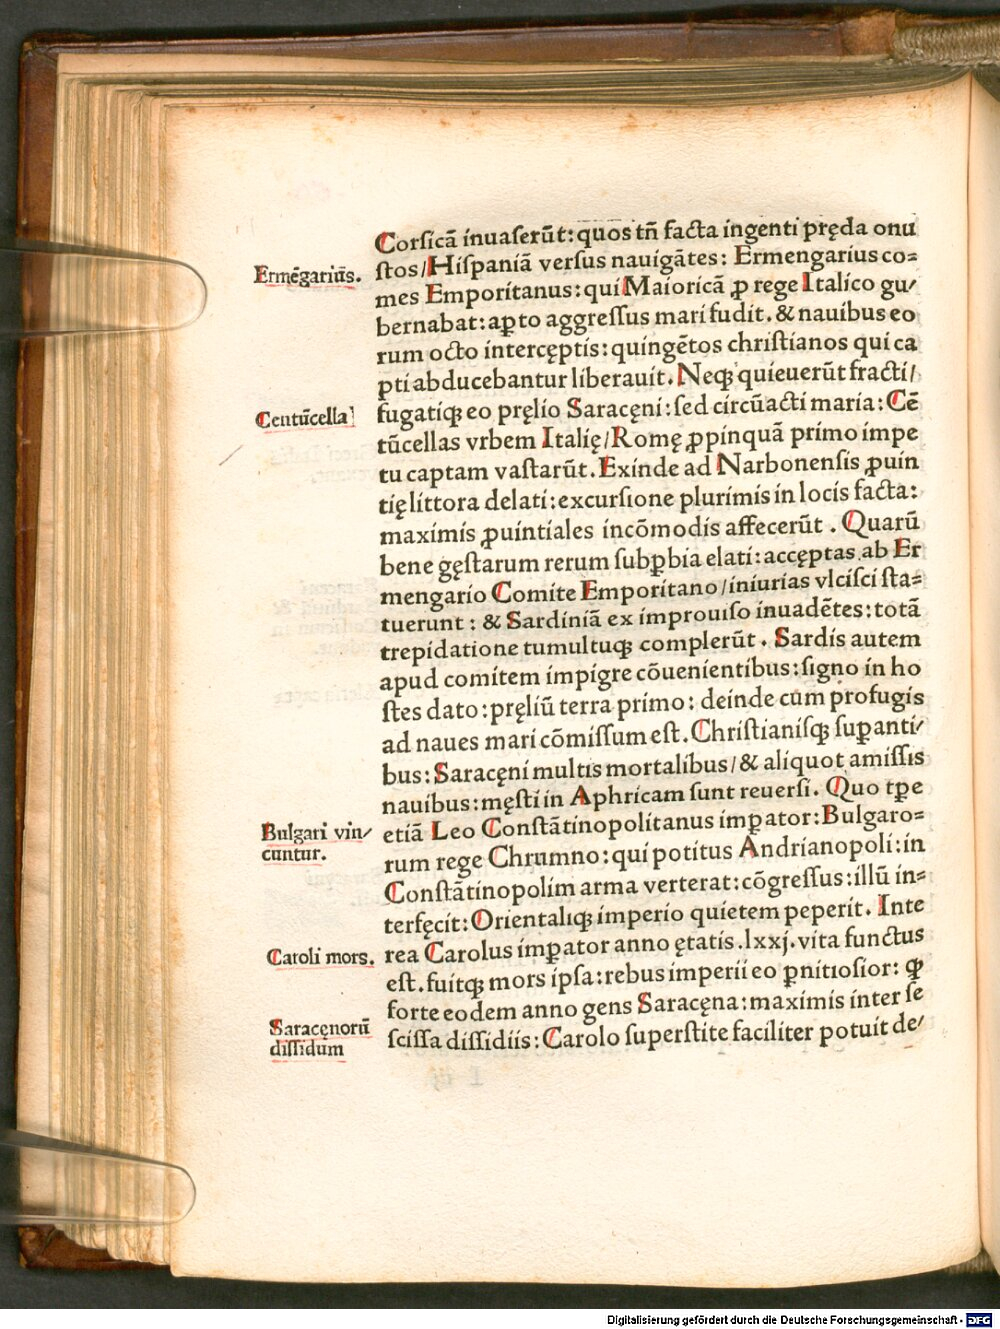 Corsicā inuaserūt: quos tñ facta ingenti pręda onu
Ermēgariūs.
stos/Hispaniā versus nauigātes: Ermengarius co=
mes Emporitanus: qui Maioricā ꝓ rege Italico gu/
bernabat: aꝑto aggressus mari fudit. & nauibus eo
rum octo interceptis: quingētos christianos qui ca
pti abducebantur liberauit. Neqꝫ quieuerūt fracti/
Centūcella
fugatiqꝫ eo pręlio Saracęni: sed circūacti maria: Cē
tūcellas vrbem Italię/Romę ꝓpinquā primo impe
tu captam vastarūt. Exinde ad Narbonensis ꝓuin
tię littora delati: excursione plurimis in locis facta:
maximis ꝓuintiales incōmodis affecerūt. Quarū
bene gęstarum rerum subꝑbia elati: acceptas ab Er
mengario Comite Emporitano/iniurias vlcisci sta=
tuerunt: & Sardiniā ex improuiso inuadētes: totā
trepidatione tumultuqꝫ complerūt. Sardis autem
apud comitem impigre cōuenientibus: signo in ho
stes dato: pręliū terra primo: deinde cum profugis
ad naues mari cōmissum est. Christianisqꝫ suꝑanti/
bus: Saracęni multis mortalibus/& aliquot amissis
nauibus: męsti in Aphricam sunt reuersi. Quo tꝑe
Bulgari vin/
cuntur.
etiā Leo Constātinopolitanus imꝑator: Bulgaro=
rum rege Chrumno: qui potitus Andrianopoli: in
Constātinopolim arma verterat: cōgressus: illū in=
terfęcit: Orientaliqꝫ imperio quietem peperit. Inte
Caroli mors.
rea Carolus imꝑator anno ętatis .lxxj. vita functus
est. fuitqꝫ mors ipsa: rebus imperii eo ꝑnitiosior: ꝙ
forte eodem anno gens Saracęna: maximis inter se
Saracęnorū
dissidum
scissa dissidiis: Carolo superstite faciliter potuit de/
Digitalisierung gefördert durch die Deutsche Forschungsgemeinschaft - DFG